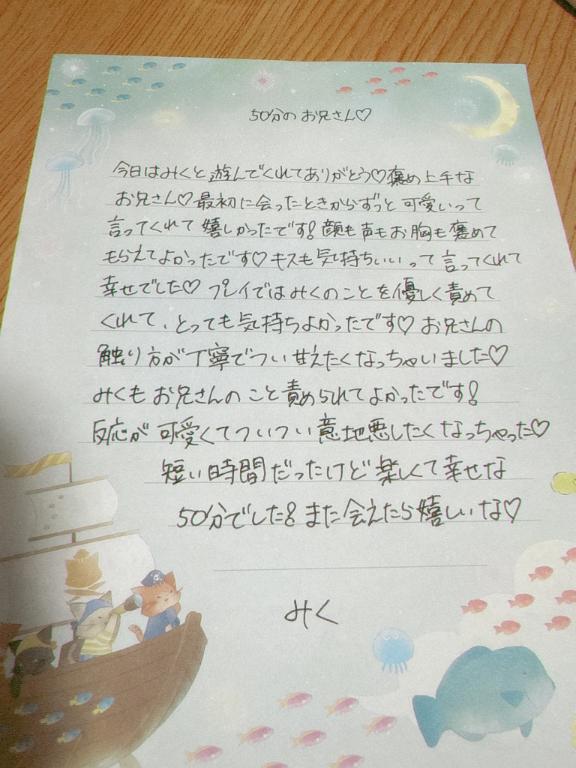 50分のお兄さん♡
今日はみくと遊んでくれてありがとう♡褒め上手な
お兄さん♡最初に会ったときからずっと可愛いって
言ってくれて嬉しかったです!顔も声もお胸も褒めて
もらえてよかったです♡キスも気持ちいいって言ってくれて
幸せでした♡プレイではみくのことを優しく責めて
くれて、とっても気持ちよかったです♡お兄さんの
触り方が丁寧でつい甘えたくなっちゃいました♡
みくもお兄さんのこと責められてよかったです!
反応が可愛くてついつい意地悪したくなっちゃった♡
短い時間だったけど楽しくて幸せな
50分でした!また会えたら嬉しいな♡
みく